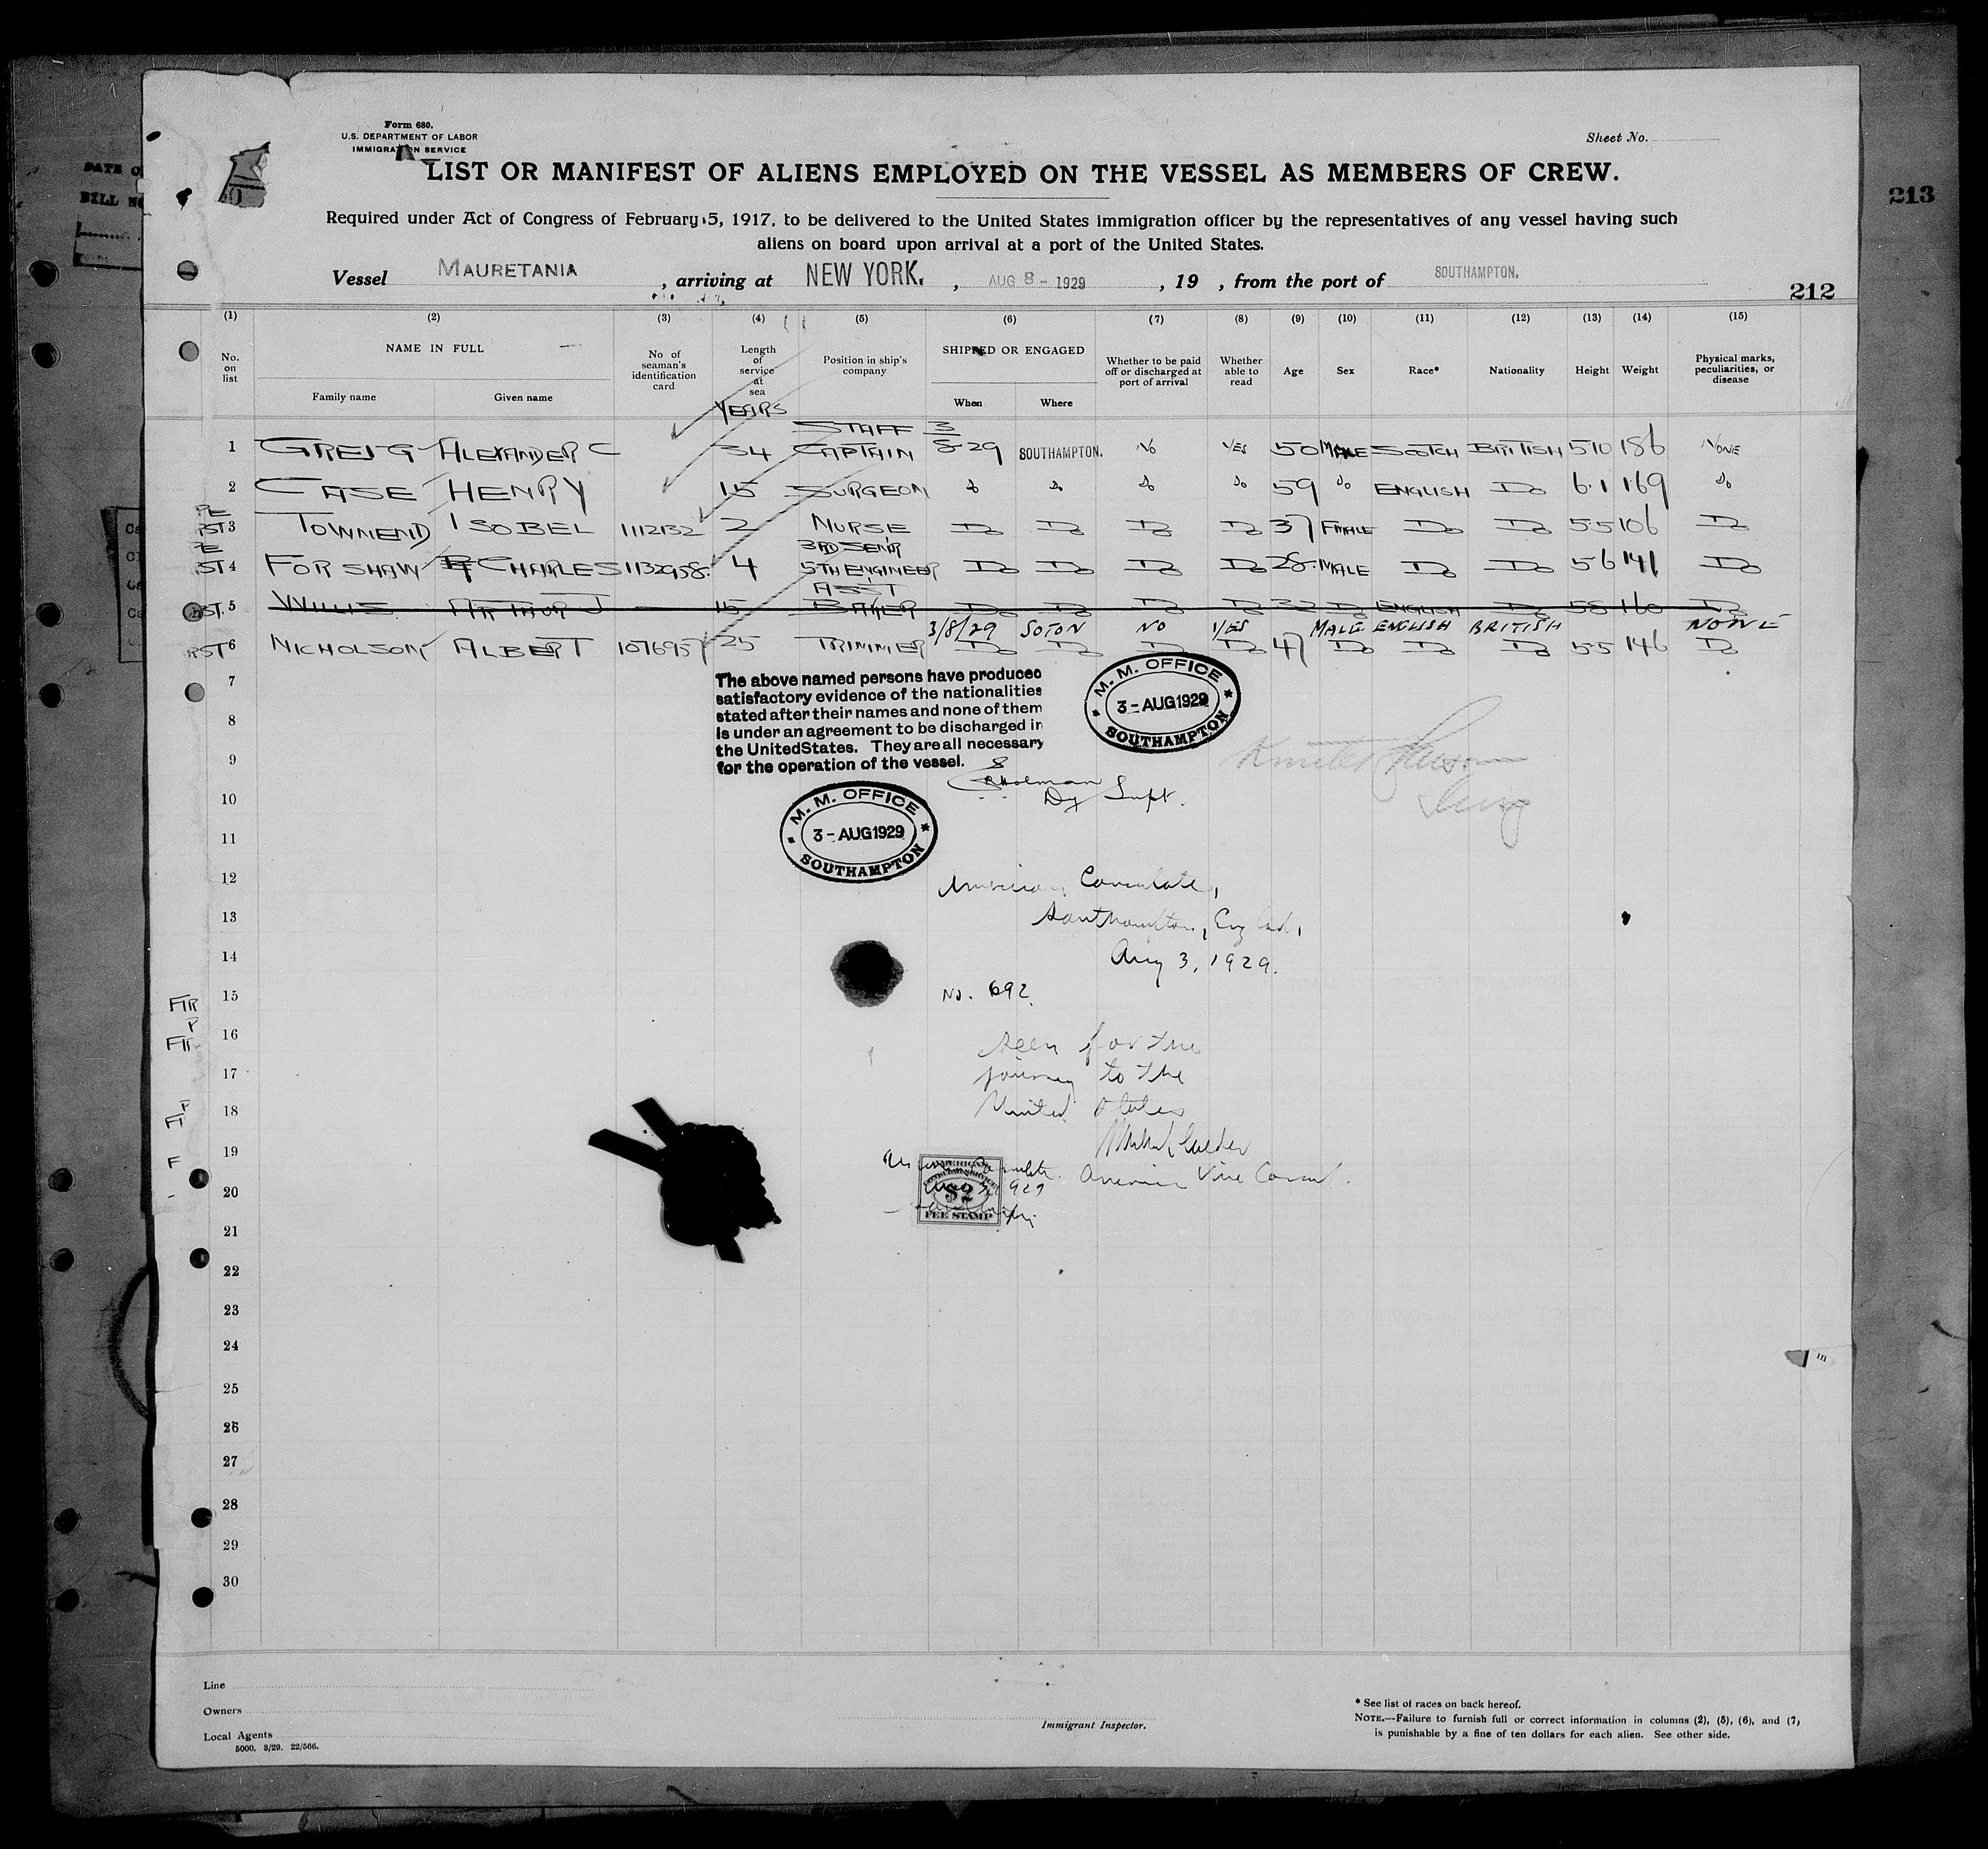 DATE O
BILL NO
213
Form 680.
U.S. DEPARTMENT OF LABOR
IMMIGRATION SERVICE
Sheet No.
LIST OR MANIFEST OF ALIENS EMPLOYED ON THE VESSEL AS MEMBERS OF CREW.
Required under Act of Congress of February 5, 1917, to be delivered to the United States immigration officer by the representatives of any vessel having such
aliens on board upon arrival at a port of the United States.
Vessel MAURETANIA, arriving at NEW YORK., AUG 8 - 1929, 19 , from the port of SOUTHAMPTON.
212
(1) (2) (3) (4) (5) (6) (7) (8) (9) (10) (11) (12) (13) (14) (15)
No. on list
NAME IN FULL
Family name Given name
No of seaman's identification card
Length of service at sea
YEARS
Position in ship's company
SHIPPED OR ENGAGED
When Where
Whether to be paid off or discharged at port of arrival
Whether able to read
Age Sex Race* Nationality Height Weight
Physical marks, peculiarities, or disease
1 GREIG ALEXANDER C 34 STAFF CAPTAIN 3/8-29 SOUTHAMPTON. No YES 50 MALE SCOTCH BRITISH 510 186 NONE
2 CASE HENRY 15 SURGEON do do do do 59 do ENGLISH Do 6.1 169 do
PE
RST 3 TOWNEND ISOBEL 1112132 2 NURSE Do Do Do Do 37 FMALE Do Do 5.5 106 Do
PE
ST 4 FORSHAW CHARLES 1132958. 4 3RD SENR 5TH ENGINEER Do Do Do Do 28. MALE Do Do 56 141 Do
RST. 5 WILLIS ARTHUR J 15 ASST BAKER Do Do Do Do 32 Do ENGLISH Do 58 160 Do
3/8/29 SOTON NO YES MALE ENGLISH BRITISH NONE
RST 6 NICHOLSON ALBERT 1076957 25 TRIMMER Do Do Do Do 47 Do Do Do 5.5 146 Do
7
The above named persons have produced
satisfactory evidence of the nationalities
stated after their names and none of them
is under an agreement to be discharged in
the United States. They are all necessary
for the operation of the vessel.
M. M. OFFICE
3 - AUG 1929
SOUTHAMPTON
8
9
10
Dy Supt.
M. M. OFFICE
3 - AUG 1929
SOUTHAMPTON
11
12
American Consulate,
13
Southampton, England,
14
Aug 3, 1929.
15
No. 692.
16
Seen for the
17
journey to the
18
United States
19
American Vice Consul.
20
AMERICAN
$2
FEE STAMP
21
22
23
24
25
26
27
28
29
30
Line
Owners
Local Agents
5000. 3/29. 22/566.
Immigrant Inspector.
* See list of races on back hereof.
NOTE.—Failure to furnish full or correct information in columns (2), (5), (6), and (7)
is punishable by a fine of ten dollars for each alien. See other side.